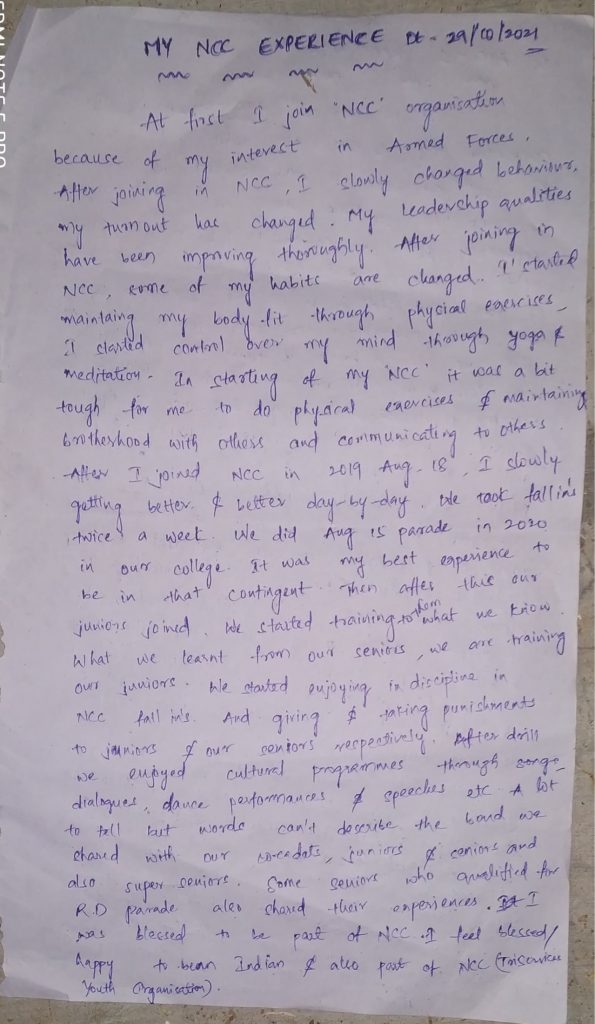 MY NCC EXPERIENCE Dt - 29/10/2021
At first I join 'NCC' organisation
because of my interest in Armed Forces.
After joining in NCC, I slowly changed behaviour,
my turnout has changed. My leadership qualities
have been improving thoroughly. After joining in
NCC, some of my habits are changed. I started
maintaing my body fit through physical exercises
I started control over my mind through yoga &
meditation. In starting of my 'NCC' it was a bit
tough for me to do physical exercises & maintaining
brotherhood with others and communicating to others.
After I joined NCC in 2019 Aug 18, I slowly
getting better & better day-by-day. We took fallin's
twice a week. We did Aug 15 parade in 2020
in our college. It was my best experience to
be in that contingent. Then after this our
juniors joined. We started training to them what we know.
What we learnt from our seniors, we are training
our juniors. We started enjoying in discipline in
NCC fall in's. And giving & taking punishments
to juniors & our seniors respectively. After drill
we enjoyed cultural programmes through songs,
dialogues, dance performances & speeches etc. A lot
to tell but words can't describe the bond we
shared with our co-cadets, juniors & seniors and
also super seniors. Some seniors who qualified for
R.D parade also shared their experiences. I
was blessed to be part of NCC. I feel blessed/
happy to be an Indian & also part of NCC (Triservices
Youth Organisation).